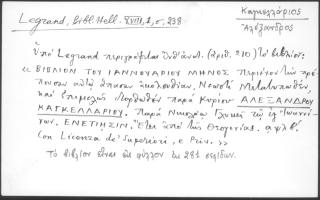 Legrand, Bibl. Hell. XVIII, 1, σ. 238
Καγκελλάριος
Ἀλέξανδρος
Ὑπὸ Legrand περιγράφεται (ἀριθ. 210) τὸ βιβλίον:
« ΒΙΒΛΙΟΝ ΤΟΥ ΙΑΝΝΟΥΑΡΙΟΥ ΜΗΝΟΣ Περιέχον τὴν πρέ-
πουσαν αὐτῷ ἅπασαν ἀκολουθίαν, Νεωστὶ Μετατυπωθὲν,
καὶ ἐπιμελῶς διορθωθὲν παρὰ κυρίου ΑΛΕΞΑΝΔΡΟΥ
ΚΑΓΚΕΛΛΑΡΙΟΥ. παρὰ Νικολάῳ Γλυκεῖ τῷ ἐξ Ἰωαννί-
νων. ΕΝΕΤΙΗΣΙΝ, Ἔτει ἀπὸ τῆς Θεογονίας.
Con Licenza de' Superiori, e Priv. »
Τὸ βιβλίον εἶναι εἰς φύλλον ἐκ σελίδων.